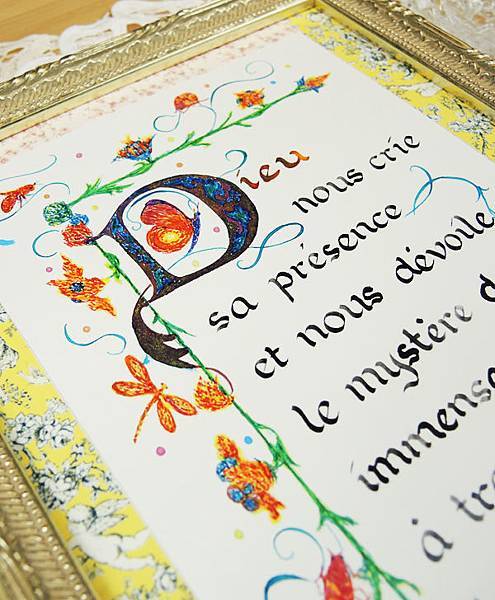 Dieu
nous crie
sa présence
et nous dévoile
le mystère d
immens
à tr